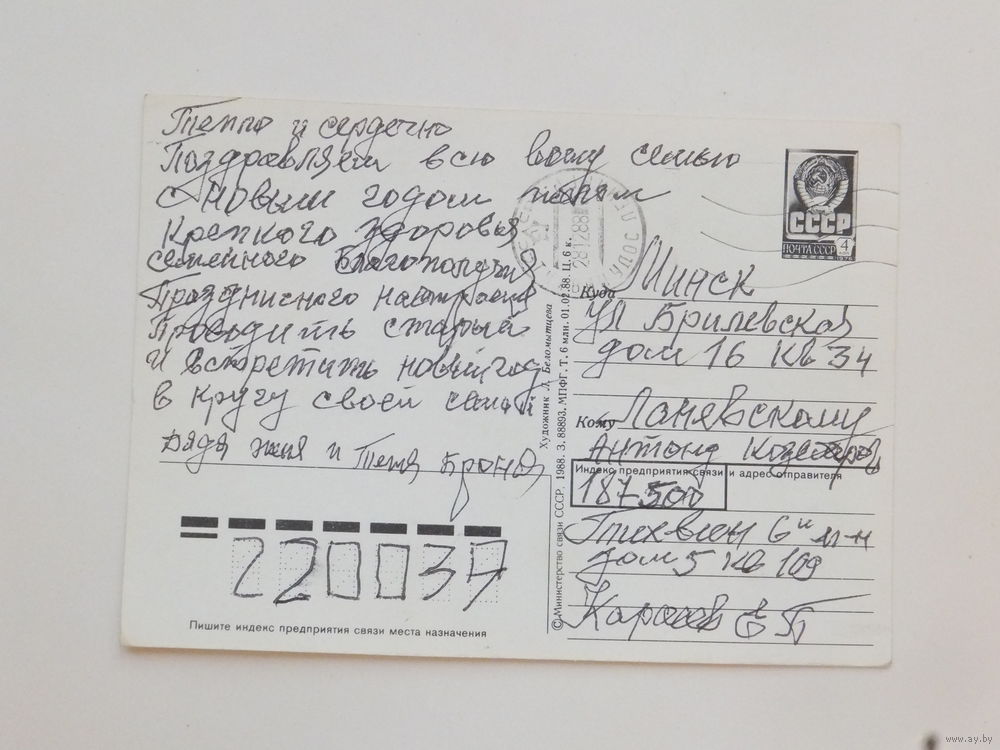 Тепло и сердечно
Поздравляем всю вашу семью
с новым годом
Крепкого здоровья
семейного благополучия
Праздничного настроения
Проводить старый
и встретить новый год
в кругу своей семьи
дядя Женя и Тетя Броня
СССР
ПОЧТА СССР
4
28.12.88
Куда Минск
ул Брилевская
дом 16 кв 34
Кому
Антону
Индекс предприятия связи и адрес отправителя
187500
6 м-н
дом 5 кв 109
220037
Пишите индекс предприятия связи места назначения
Художник Л. Беломытцева
© Министерство связи СССР. 1988. З. 88893. МПФГ. Т. 6 млн. 01.02.88. Ц. 6 к.
www.ay.by